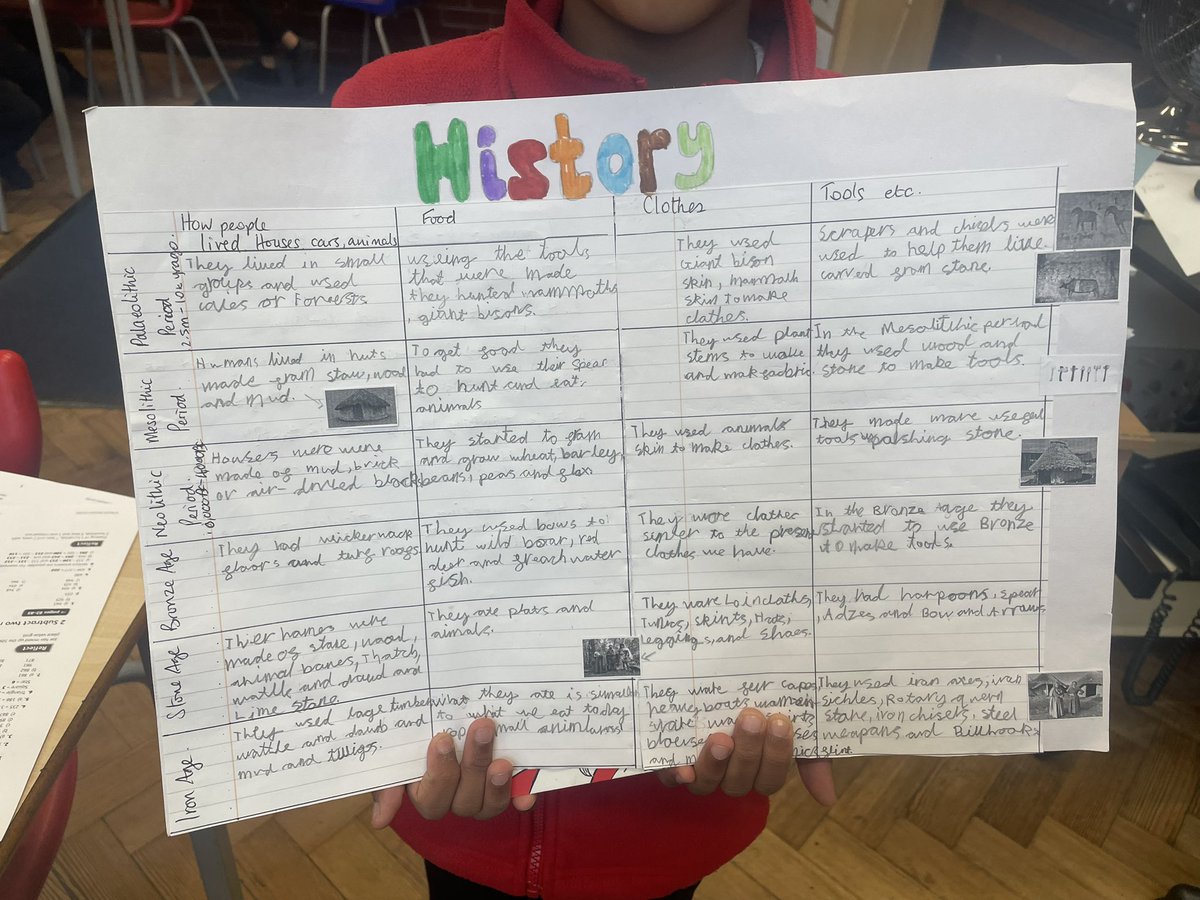 History
How people
lived Houses cars, animals
Food
Clothes
Tools etc.
Palaeolithic
Period
They lived in small
groups and used
or Forrests
useing the tools
that were made
they hunted mammoths
, giant bisons.
They used
Giant bison
skin, mammoth
skin to make
clothes.
Scrapers and chisels were
used to help them live.
carved from stone.
Mesolithic
Period.
Humans lived in huts
made from staw, wood
and mud.
To get food they
had to use their spear
to hunt and eat.
animals
They used plant
stems to make
and mak fabric.
In the Mesolitchic period
they used wood and
stone to make tools.
Neolithic
Period.
Houses were were
made of mud, brick
or air-dried block
They started to fram
and grow wheat, barley,
beans, peas and flax.
They used animals
skin to make clothes.
They made more useful
tools polishing stone.
Bronze Age
They had
floors and turf roofs
They used bows to
hunt wild boar, red
deer and water
fish.
They wore clothes
simler to the present
clothes we have.
In the Bronze age they
started to use Bronze
to make tools.
Stone Age
Thier homes were
made of stone, wood,
animal bones, Thatch,
wattle and daud and
Lime stone.
They ate plats and
animals.
They ware Loincloths,
Tunics, skints, Hats,
leggings, and shoes.
They had harpoons, Spear
, Adzes and Bow and Arrows
Iron Age
They used lage timber
wattle and daunb and
mud and twigs.
What they ate is
to what we eat today
small animals
They wore capes
heavy boats
and
They used iron axes, iron
Sichles, Rotary quern
Stone, iron chisels, steel
weapans and Billhooks
flint
2 Subtract two
Reflect